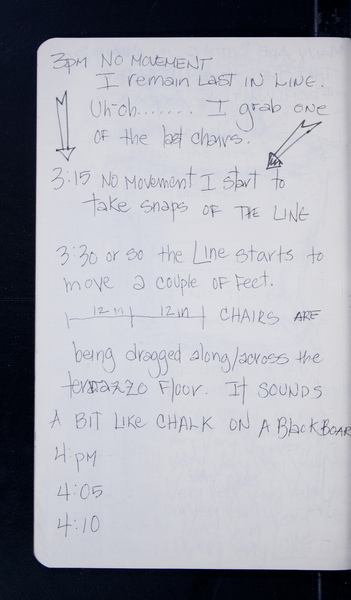 3pm NO MOVEMENT
I remain LAST IN LINE.
Uh-oh....... I grab one
OF the last chairs.
3:15 NO MOVEMENT I start to
take snaps OF THE LINE
3:30 or so the Line starts to
move a couple OF FEET.
12 in 12 in CHAIRS ARE
being dragged along/across the
terrazzo FLOOR. It SOUNDS
A BIT LIKE CHALK ON A BlackBOAR
4 pm
4:05
4:10